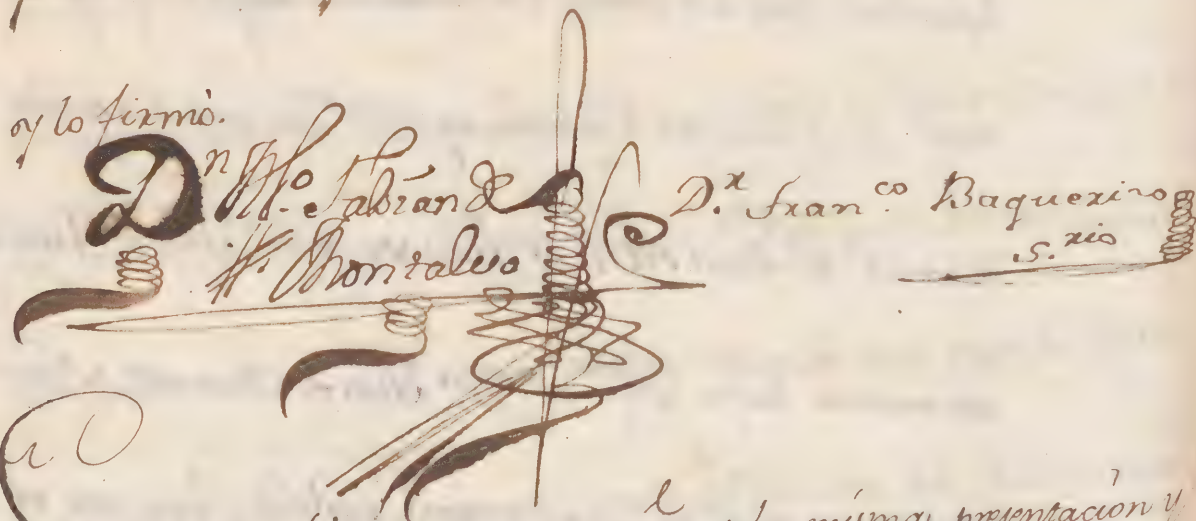 y lo firmó.
Dn Fabián de
Montalvo
D.r Fran.co Baquerizo
S.rio
misma, presentación y